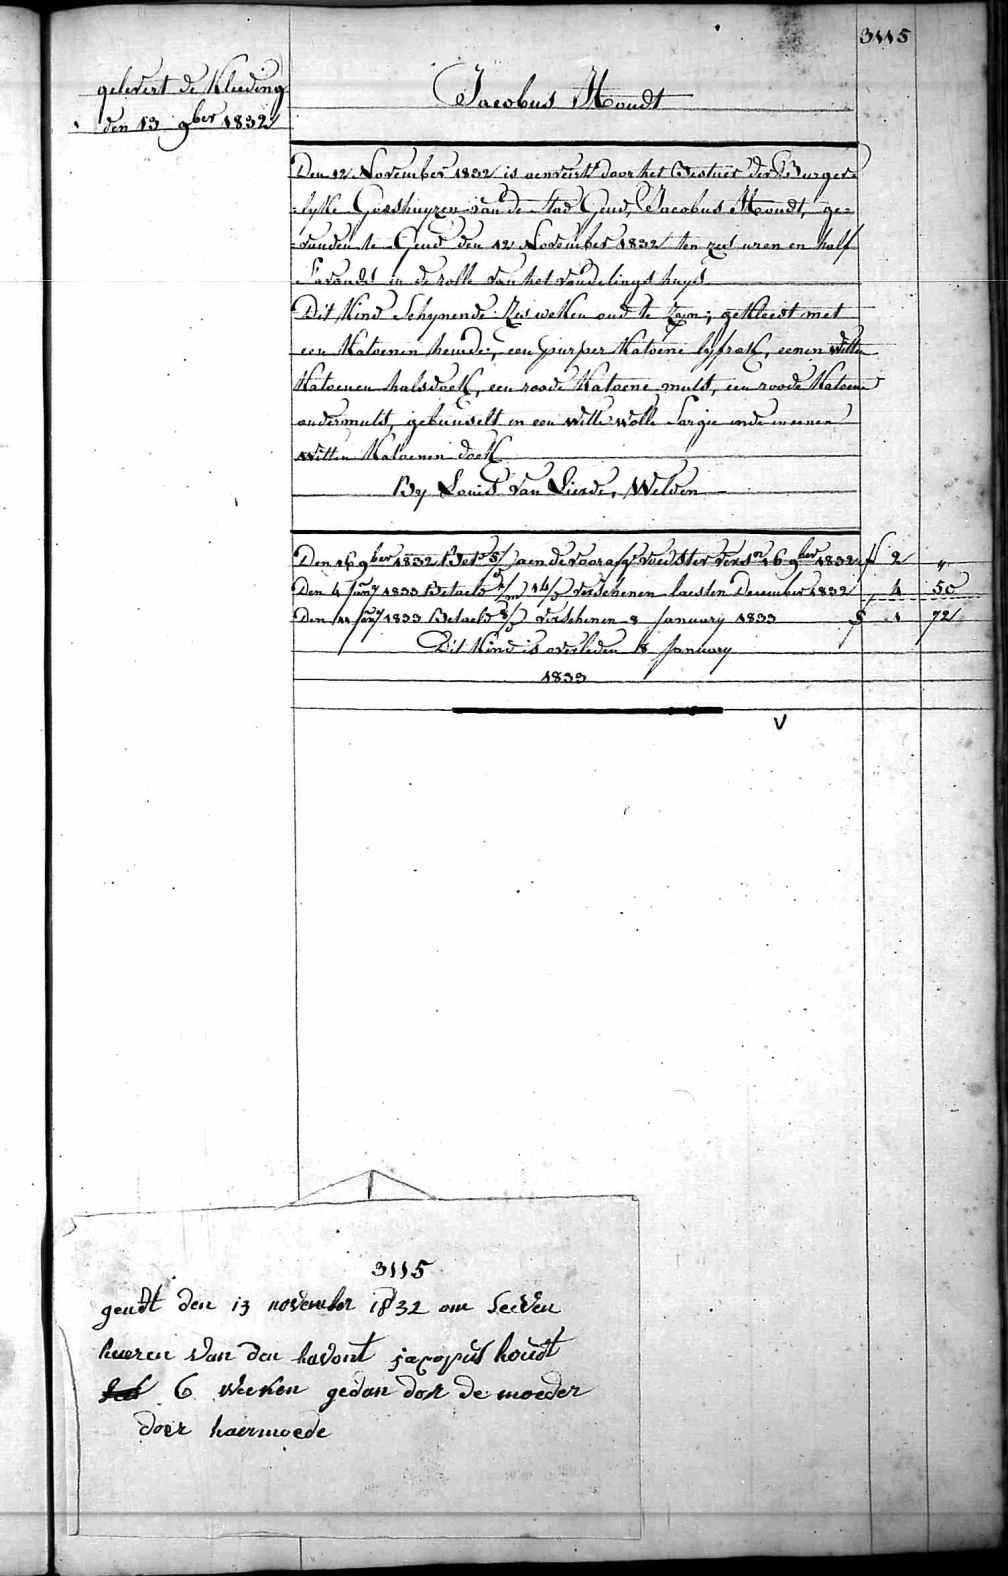 3115
gelevert de Kleeding
den 13 9ber 1832
Jacobus Houdt
Den 12 November 1832 is aenveirt door het Bestuer der Burger=
=lyke Godshuyzen van de Stad Gend, Jacobus Houdt, ge=
=vonden te Gend den 12 November 1832 ten zes uren en half
S'avonds in de rolle van het vondelings huys
Dit Kind Schynende Zes weken oud te Zyn; gekleedt met
een Katoenen hemde, een purper Katoene lyfrok, eenen Witten
Katoenen halsdoek, een roode Katoene muts, een roode Katoene
ondermuts, gebusselt in een Witte Wolle Sargie ende in eenen
Witten Katoenen doek
By Louis Van Lierde, Welden
Den 16 9ber 1832 Bet. 8/ aen de voorasge Voedster versn 16 9ber 1832 f 2 "
Den 4 Jany 1833 Betaelt 14/ verschenen laesten December 1832 4 50
Den 11 Jany 1833 Betaelt 8/ verschenen 8 January 1833 f 1 72
Dit Kind is overleden 8 January
1833
V
3115
gendt den 13 november 1832 om seeven
hueren van den havont jacopus houdt
6 weeken gedan dor de moeder
doer haermoede